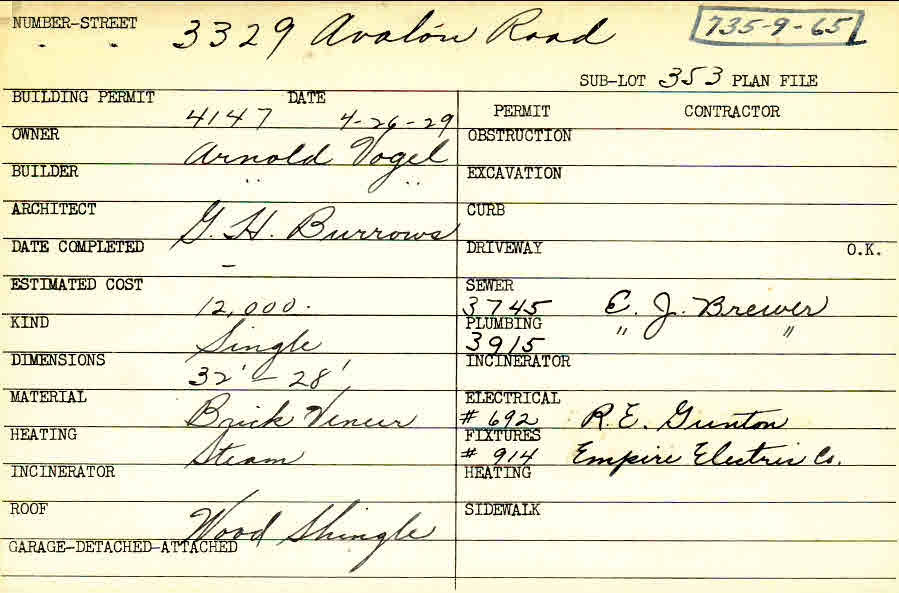 NUMBER-STREET 3329 Avalon Road 735-9-65
" "
SUB-LOT 353 PLAN FILE
BUILDING PERMIT DATE
4147 4-26-29
OWNER
Arnold Vogel
BUILDER
" "
ARCHITECT
G. H. Burrows
DATE COMPLETED
-
ESTIMATED COST
12,000.
KIND
Single
DIMENSIONS
32' - 28'
MATERIAL
Brick Veneer
HEATING
Steam
INCINERATOR
ROOF
Wood Shingle
GARAGE-DETACHED-ATTACHED
PERMIT CONTRACTOR
OBSTRUCTION
EXCAVATION
CURB
DRIVEWAY O.K.
SEWER
3745 E. J. Brewer
PLUMBING " "
3915
INCINERATOR
ELECTRICAL
# 692 R. E. Gunton
FIXTURES
# 914 Empire Electric Co.
HEATING
SIDEWALK